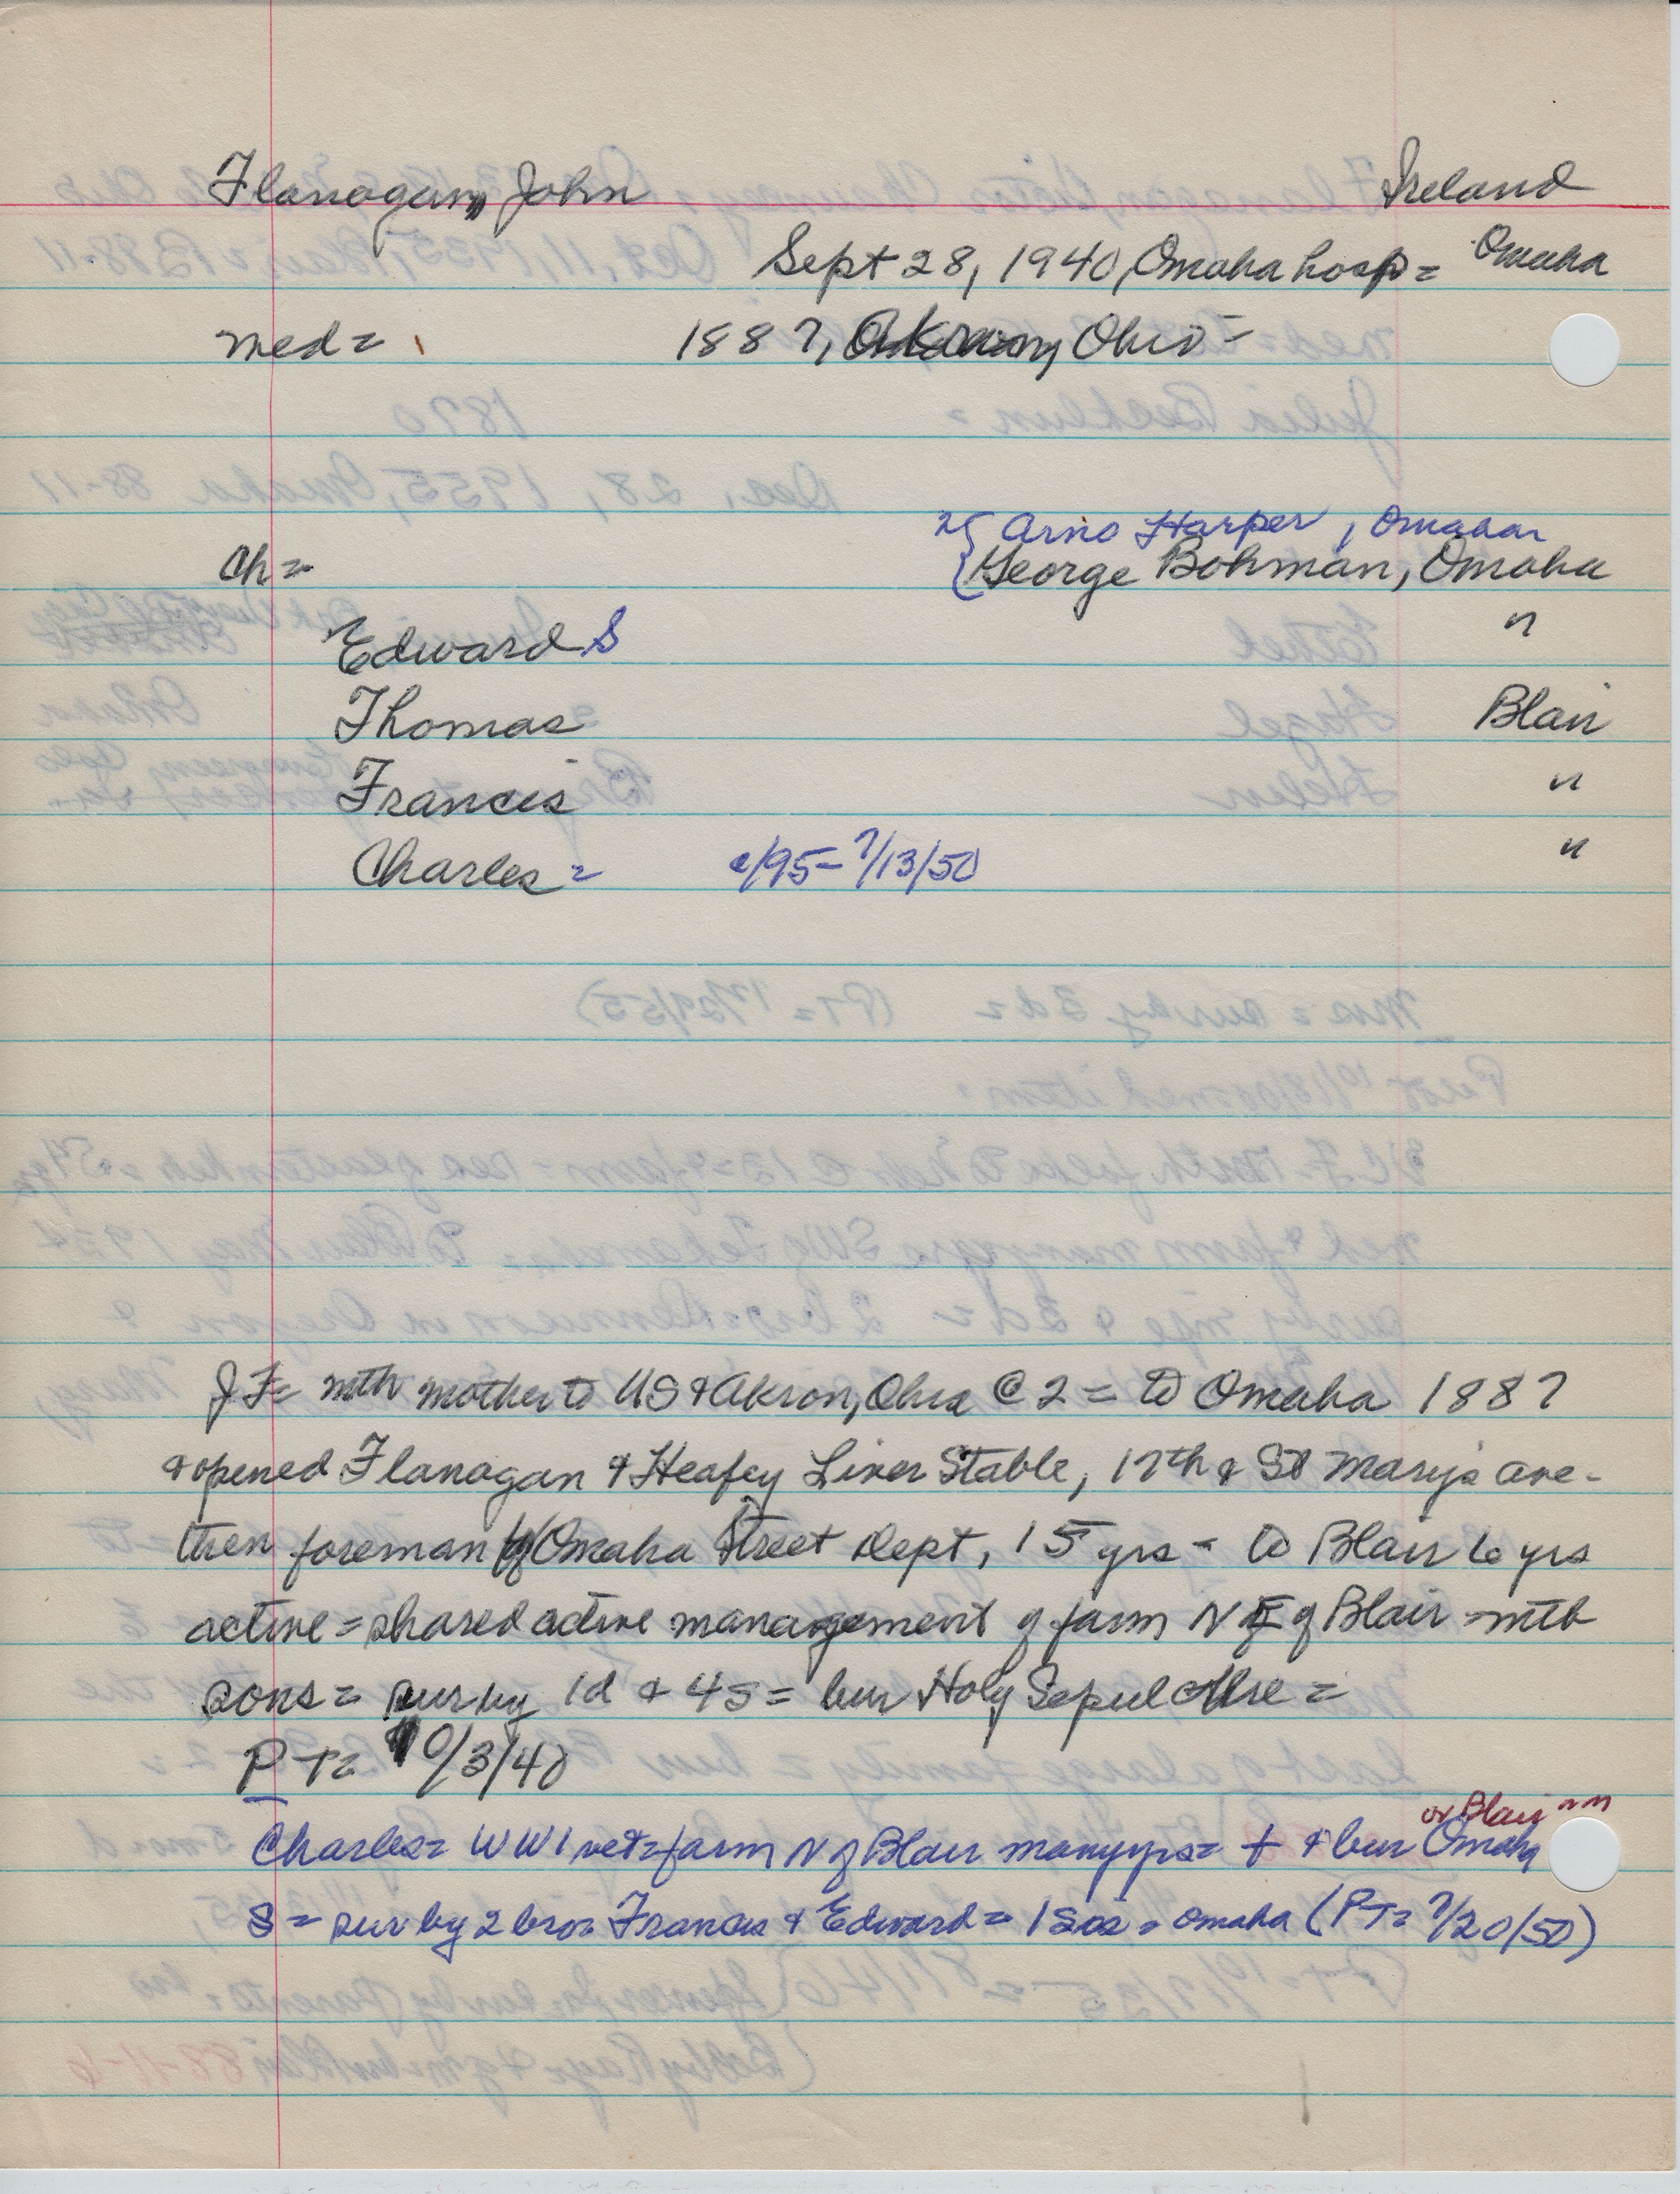 Flanagan, John Ireland
Sept 28, 1940, Omaha hosp = Omaha
med = 1887, Ohio -
2{ Arno Harper, Omaha
Ch = {George Bohman, Omaha
Edward S "
Thomas Blair
Francis "
Charles = c/95 - 7/13/50 "
JF = mth mother to US & Akron, Ohio @ 2 = to Omaha 1887
& opened Flanagan & Heafey Liver Stable, 17th & St Mary's ave -
then foreman of Omaha Street Dept, 15 yrs - to Blair 6 yrs
active = shared active management of farm NE of Blair = mth
sons = sur by 1d & 4s = bur Holy Sepulchre =
PT = 10/3/40
or Blair
Charles = WW1 vet = farm N of Blair many yrs = + & bur Omaha
S = sur by 2 bro = Francis & Edward = 1 sis = Omaha (PT = 7/20/50)